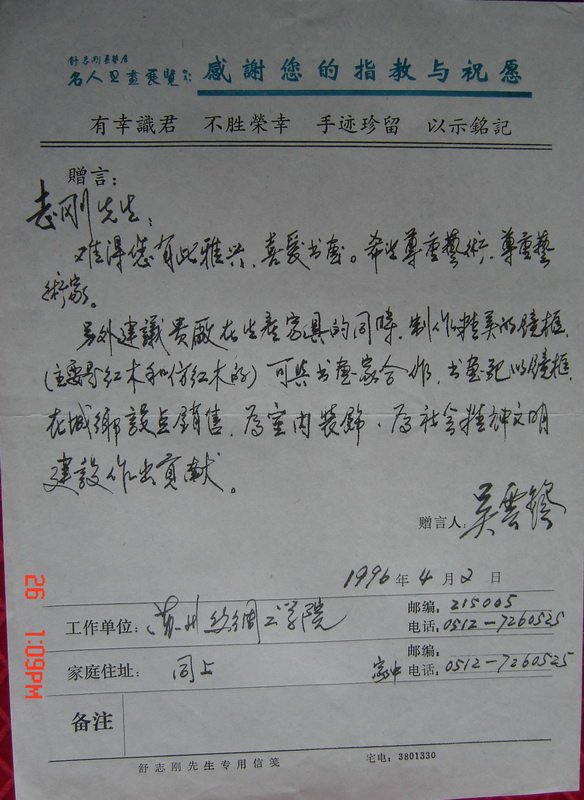 舒志刚先生
名人书画展览 感謝您的指教与祝愿
有幸識君 不胜榮幸 手迹珍留 以示銘記
贈言：
志刚先生：
难得您有此雅兴，喜爱书画。希生尊重藝術，尊重藝
術家。
另外建議貴廠在生産家具的同時，制作精美的镜框，
(主要是红木和仿红木的) 可与书画家合作，书画配以镜框，
在城鄉設点銷售，為室内装飾、為社会精神文明
建設作出貢献。
贈言人：吴雲
1996 年 4 月 2 日
工作单位：苏州丝绸工学院 邮编，215005
电话，0512-7260525
家庭住址：同上 邮编：
家中 电话，0512-7260525
备注
舒志刚先生专用信笺 宅电：3801330
26 1:09PM